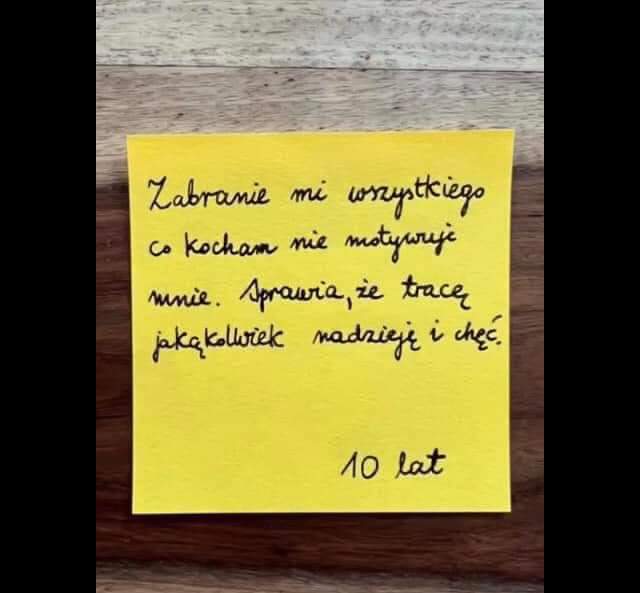 Zabranie mi wszystkiego
co kocham nie motywuje
mnie. Sprawia, że tracę
jakąkolwiek nadzieję i chęć.
10 lat